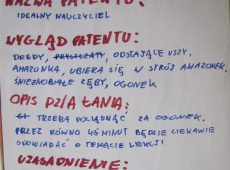 NAZWA PATENTU:
IDEALNY NAUCZYCIEL
WYGLĄD PATENTU:
DREDY, PRYSZCZATY, ODSTAJĄCE USZY,
AMAZONKA, UBIERA SIĘ W STRÓJ AMAZONEK,
ŚNIEŻNOBIAŁE ZĘBY, OGONEK
OPIS DZIAŁANIA:
TRZEBA POCIĄGNĄĆ ZA OGONEK,
PRZEZ RÓWNO 45 MINUT BĘDZIE CIEKAWIE
OPOWIADAĆ O TEMACIE LEKCJI
UZASADNIENIE: